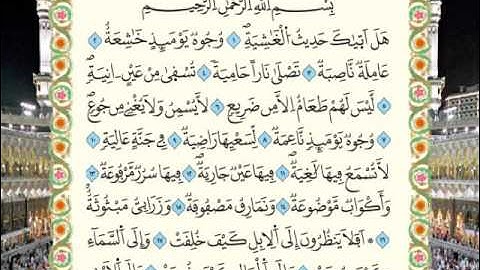 بِسْمِ اللَّهِ الرَّحْمَٰنِ الرَّحِيمِ
هَلْ أَتَىٰكَ حَدِيثُ الْغَٰشِيَةِ ۝ وُجُوهٌ يَوْمَئِذٍ خَٰشِعَةٌ ٢
عَامِلَةٌ نَّاصِبَةٌ ٣ تَصْلَىٰ نَارًا حَامِيَةً ٤ تُسْقَىٰ مِنْ عَيْنٍ ءَانِيَةٍ
٥ لَّيْسَ لَهُمْ طَعَامٌ إِلَّا مِن ضَرِيعٍ ٦ لَّا يُسْمِنُ وَلَا يُغْنِي مِن جُوعٍ
٧ وُجُوهٌ يَوْمَئِذٍ نَّاعِمَةٌ ٨ لِّسَعْيِهَا رَاضِيَةٌ ٩ فِي جَنَّةٍ عَالِيَةٍ ١٠
لَّا تَسْمَعُ فِيهَا لَٰغِيَةً ١١ فِيهَا عَيْنٌ جَارِيَةٌ ١٢ فِيهَا سُرُرٌ مَّرْفُوعَةٌ ١٣
وَأَكْوَابٌ مَّوْضُوعَةٌ ١٤ وَنَمَارِقُ مَصْفُوفَةٌ ١٥ وَزَرَابِيُّ مَبْثُوثَةٌ
١٦ أَفَلَا يَنظُرُونَ إِلَى الْإِبِلِ كَيْفَ خُلِقَتْ ١٧ وَإِلَى السَّمَاءِ